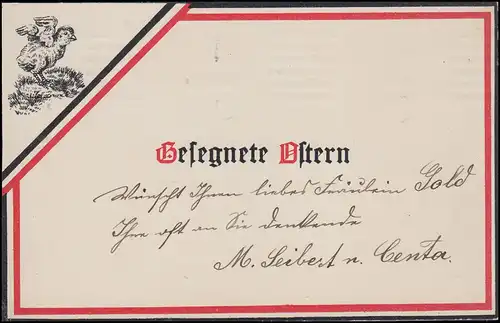 Gesegnete Ostern
Wünscht Ihnen liebes Fräulein Gold
Ihre oft an Sie denkende
M. Seibert u. Centa.